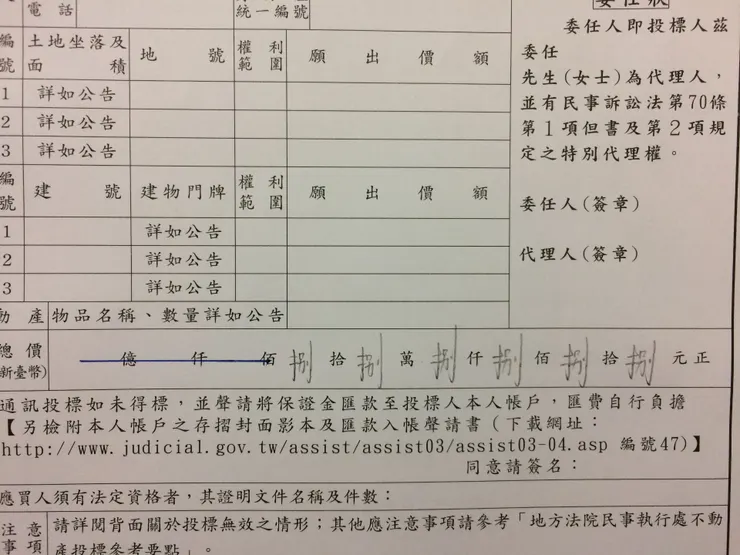 電話 統一編號 委任狀
編號 土地坐落及面積 地號 權利範圍 願出價額
1 詳如公告
2 詳如公告
3 詳如公告
編號 建號 建物門牌 權利範圍 願出價額
1 詳如公告
2 詳如公告
3 詳如公告
動產 物品名稱、數量詳如公告
總價(新臺幣) 億仟佰捌拾捌萬捌仟捌佰捌拾捌元正
委任人即投標人茲
委任
先生(女士)為代理人,
並有民事訴訟法第70條
第1項但書及第2項規
定之特別代理權。
委任人(簽章)
代理人(簽章)
通訊投標如未得標,並聲請將保證金匯款至投標人本人帳戶,匯費自行負擔
【另檢附本人帳戶之存摺封面影本及匯款入帳聲請書(下載網址:
http://www.judicial.gov.tw/assist/assist03/assist03-04.asp 編號47)】
同意請簽名:
應買人須有法定資格者,其證明文件名稱及件數:
注意事項 請詳閱背面關於投標無效之情形;其他應注意事項請參考「地方法院民事執行處不動
產投標參考要點」。